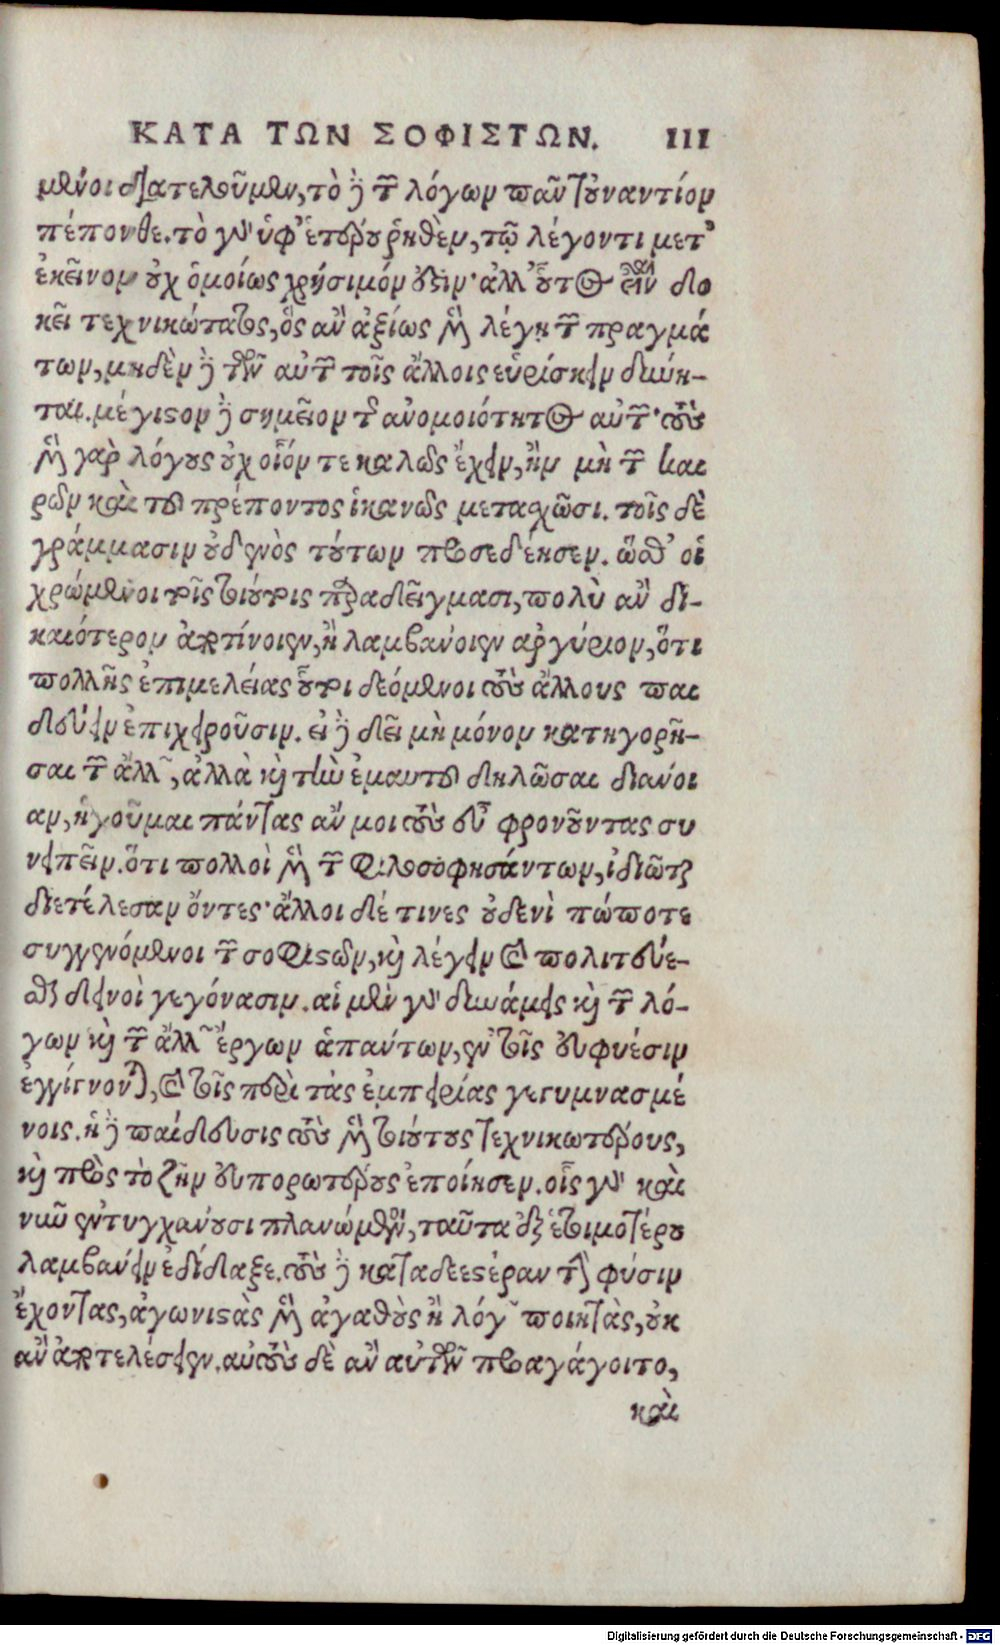 ΚΑΤΑ ΤΩΝ ΣΟΦΙΣΤΩΝ. 111
μενοι διατελοῦμεν, τὸ δὲ τῶν λόγων πᾶν τοὐναντίον
πέπονθε. τὸ γὰρ ὑφ' ἑτέρου ῥηθὲν, τῷ λέγοντι μετ'
ἐκεῖνον οὐχ ὁμοίως χρήσιμόν ἐστιν· ἀλλ' οὗτος εἶναι δο
κεῖ τεχνικώτατος, ὃς ἂν ἀξίως μὲν λέγῃ τῶν πραγμά
των, μηδὲν δὲ τῶν αὐτῶν τοῖς ἄλλοις εὑρίσκειν δύνη-
ται. μέγιστον δὲ σημεῖον τῆς ἀνομοιότητος αὐτῶν· τοὺς
μὲν γὰρ λόγους οὐχ οἷόν τε καλῶς ἔχειν, ἢν μὴ τῶν και
ρῶν καὶ τοῦ πρέποντος ἱκανῶς μεταχῶσι. τοῖς δὲ
γράμμασιν οὐδενὸς τούτων προσεδέησεν. ὥσθ' οἱ
χρώμενοι τοῖς τοιούτοις παραδείγμασι, πολὺ ἂν δι-
καιότερον ἀποτίνοιεν, ἢ λαμβάνοιεν ἀργύριον, ὅτι
πολλῆς ἐπιμελείας αὐτοὶ δεόμενοι τοὺς ἄλλους παι
δεύειν ἐπιχειροῦσιν. εἰ δὲ δεῖ μὴ μόνον κατηγορῆ-
σαι τῶν ἄλλων, ἀλλὰ καὶ τὴν ἐμαυτοῦ δηλῶσαι διάνοι
αν, ἡγοῦμαι πάντας ἄν μοι τοὺς εὖ φρονοῦντας συ
νειπεῖν. ὅτι πολλοὶ μὲν τῶν φιλοσοφησάντων, ἰδιῶται
διετέλεσαν ὄντες· ἄλλοι δέ τινες οὐδενὶ πώποτε
συγγενόμενοι τῶν σοφιστῶν, καὶ λέγειν καὶ πολιτεύε-
σθαι δεινοὶ γεγόνασιν. αἱ μὲν γὰρ δυνάμεις καὶ τῶν λό-
γων καὶ τῶν ἄλλων ἔργων ἁπάντων, ἐν τοῖς εὐφυέσιν
ἐγγίγνονται, καὶ τοῖς περὶ τὰς ἐμπειρίας γεγυμνασμέ
νοις. ἡ δὲ παίδευσις τοὺς μὲν τοιούτους τεχνικωτέρους,
καὶ πρὸς τὸ ζῆν εὐπορωτέρους ἐποίησεν. οἷς γὰρ καὶ
νῦν ἐντυγχάνουσι πλανώμενοι, ταῦτα ἐξ ἑτοιμοτέρου
λαμβάνειν ἐδίδαξε. τοὺς δὲ καταδεεστέραν τὴν φύσιν
ἔχοντας, ἀγωνιστὰς μὲν ἀγαθοὺς ἢ λόγων ποιητὰς, οὐκ
ἂν ἀποτελέσειεν. αὐτοὺς δὲ ἂν αὑτῶν προαγάγοιτο,
καὶ
Digitalisierung gefördert durch die Deutsche Forschungsgemeinschaft - DFG